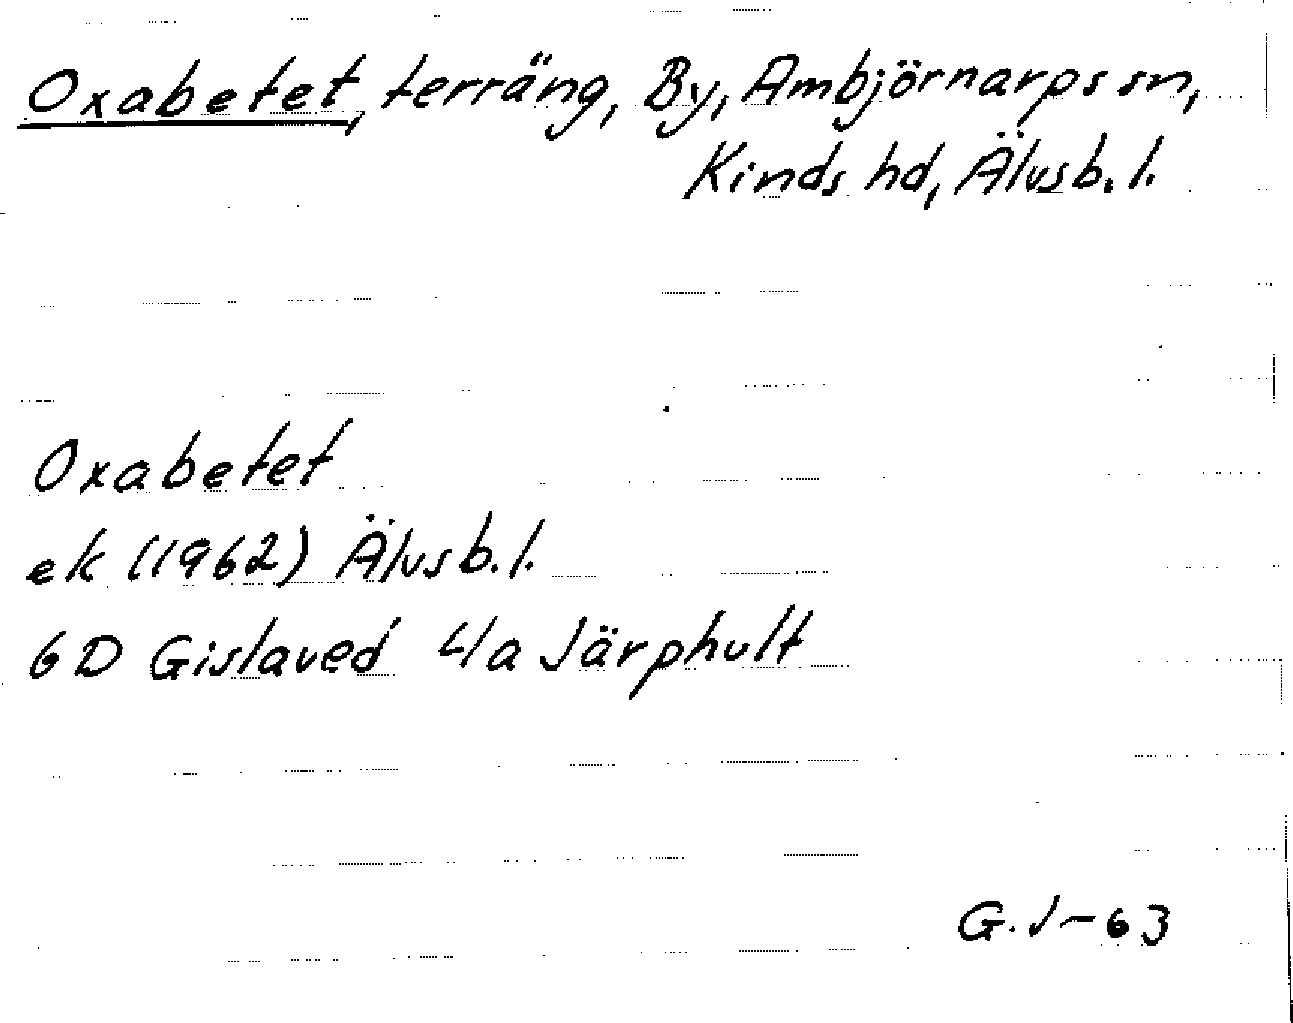 Oxabetet, terräng, By, Ambjörnarps sn,
Kinds hd, Älvsb. l.
Oxabetet
ek (1962) Älvsb. l.
6D Gislaved 4a Järphult
G. J-63